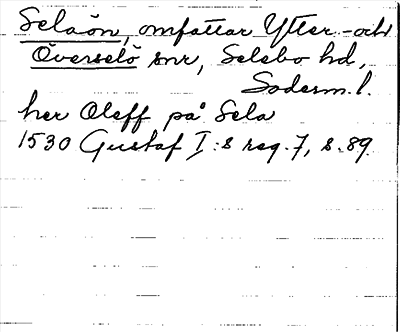 Selaön, omfattar Ytter- och
Överselö snr, Selebo hd,
Söderm. l.
her Oleff på Sela
1530 Gustaf I:s reg. 7, s. 89.